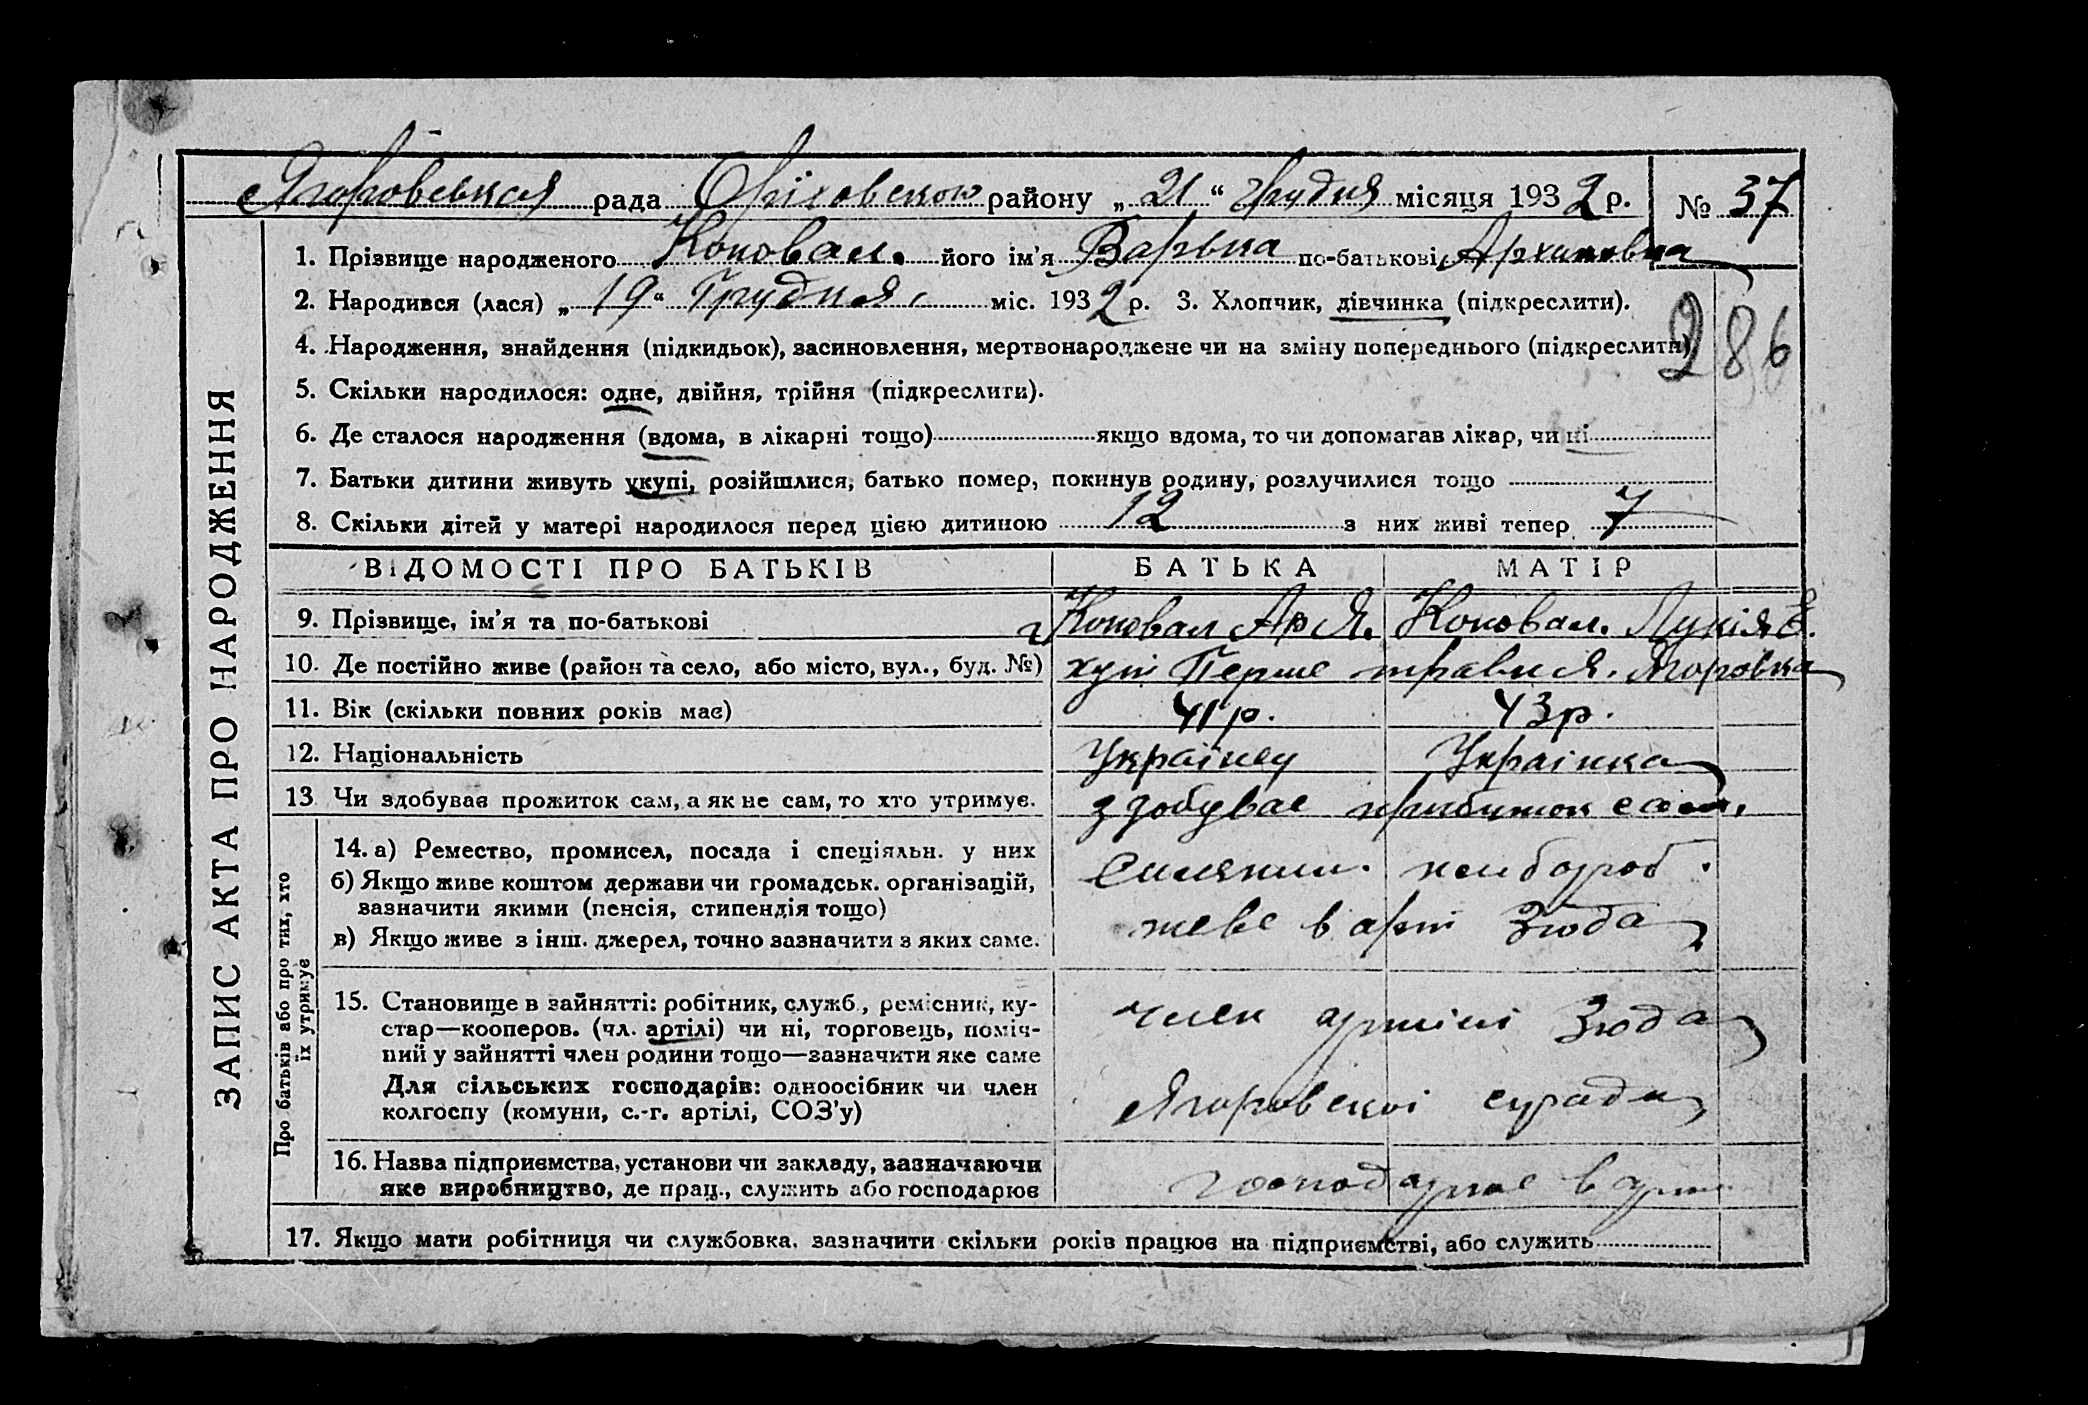 Ягоровська рада Оріховскою району „21“ грудня місяця 1932 р. № 37
1. Прізвище народженого Коновал. його ім'я Варька по-батькові Архиповна
2. Народився (лася) „19“ Грудня міс. 1932 р. 3. Хлопчик, дівчинка (підкреслити).
286
4. Народження, знайдення (підкидьок), засиновлення, мертвонароджене чи на зміну попереднього (підкреслити)
5. Скільки народилося: одне, двійня, трійня (підкреслити).
6. Де сталося народження (вдома, в лікарні тощо) якщо вдома, то чи допомагав лікар, чи ні
7. Батьки дитини живуть укупі, розійшлися, батько помер, покинув родину, розлучилися тощо
8. Скільки дітей у матері народилося перед цією дитиною 12 з них живі тепер 7
ЗАПИС АКТА ПРО НАРОДЖЕННЯ
ВІДОМОСТІ ПРО БАТЬКІВ БАТЬКА МАТІР
9. Прізвище, ім'я та по-батькові Коновал Ар Я. Коновал. Лукія Є.
10. Де постійно живе (район та село, або місто, вул., буд. №) хут Перше травня. Ягоровка
11. Вік (скільки повних років має) 41 р. 43 р.
12. Національність Українец Украінка
13 Чи здобував прожиток сам, а як не сам, то хто утримує. здобувае прибиток сам.
Про батьків або про тих, хто їх утримує
14. а) Ремество, промисел, посада і спеціяльн. у них
б) Якщо живе коштом держави чи громадськ. організацій,
зазначити якими (пенсія, стипендія тощо)
в) Якщо живе з інш. джерел, точно зазначити з яких саме.
живе в арт
15. Становище в зайнятті: робітник, служб., ремісник, ку-
стар—кооперов. (чл. артілі) чи ні, торговець, поміч-
ний у зайнятті член родини тощо—зазначити яке саме
Для сільських господарів: одноосібник чи член
колгоспу (комуни, с.-г. артілі, СОЗ'у)
член артілі
Ягоровскоі сради
16. Назва підприємства, установи чи закладу, зазначаючи
яке виробництво, де прац., служить або господарює
господарює в арт
17. Якщо мати робітниця чи службовка, зазначити скільки років працює на підприємстві, або служить